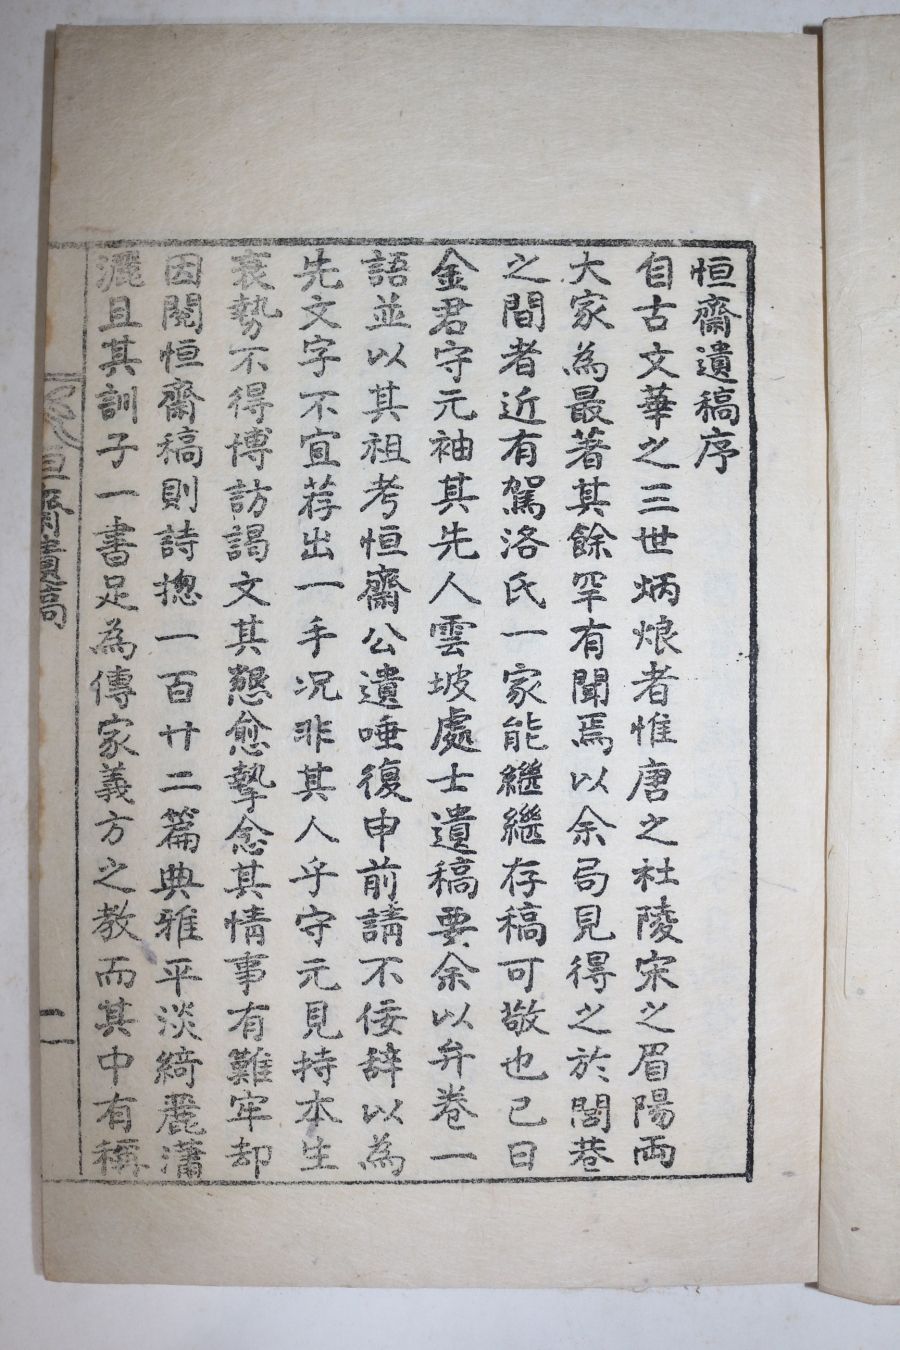 恒齋遺稿序
自古文華之三世炳烺者惟唐之杜陵宋之眉陽両
大家為最著其餘罕有聞焉以余局見得之於閭巷
之間者近有駕洛氏一家能繼繼存稿可敬也已日
金君守元袖其先人雲坡處士遺稿要余以弁卷一
語並以其祖考恒齋公遺唾復申前請不佞辭以為
先文字不宜荐出一手况非其人乎守元見持本生
衰勢不得博訪謁文其懇愈摯念其情事有難牢却
因閱恒齋稿則詩摠一百廿二篇典雅平淡綺麗瀟
灑且其訓子一書足為傳家義方之教而其中有稱
恒齋遺稿
二